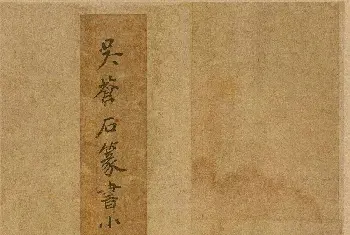 吳蒼石篆書小